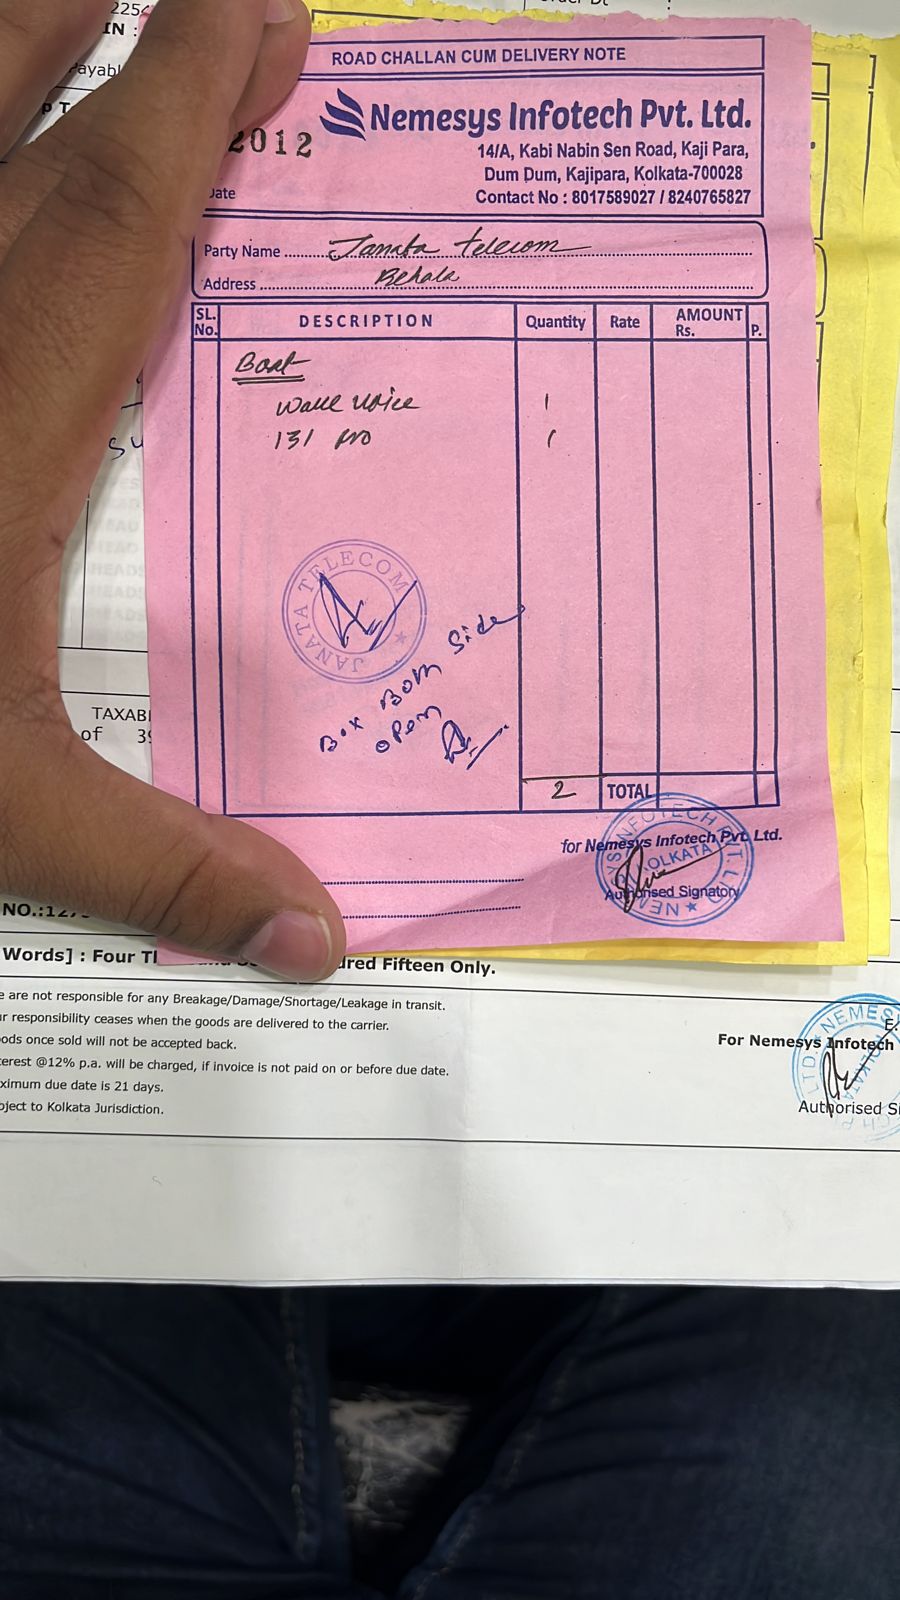 2254
IN :
Payabl
ROAD CHALLAN CUM DELIVERY NOTE
2012
Nemesys Infotech Pvt. Ltd.
14/A, Kabi Nabin Sen Road, Kaji Para,
Dum Dum, Kajipara, Kolkata-700028
Contact No : 8017589027 / 8240765827
Date
Party Name Janata Telecom
Address Behala
SL. No. DESCRIPTION Quantity Rate AMOUNT Rs. P.
Boat
131 pro 1
JANATA TELECOM
Box Both Side
open
2 TOTAL
TAXABL
of 39
for Nemesys Infotech Pvt. Ltd.
NEMESYS INFOTECH PVT. LTD. KOLKATA
Authorised Signatory
NO.:127
Words] : Four Th dred Fifteen Only.
e are not responsible for any Breakage/Damage/Shortage/Leakage in transit.
ur responsibility ceases when the goods are delivered to the carrier.
ods once sold will not be accepted back.
terest @12% p.a. will be charged, if invoice is not paid on or before due date.
ximum due date is 21 days.
bject to Kolkata Jurisdiction.
E.
For Nemesys Infotech
Authorised Si